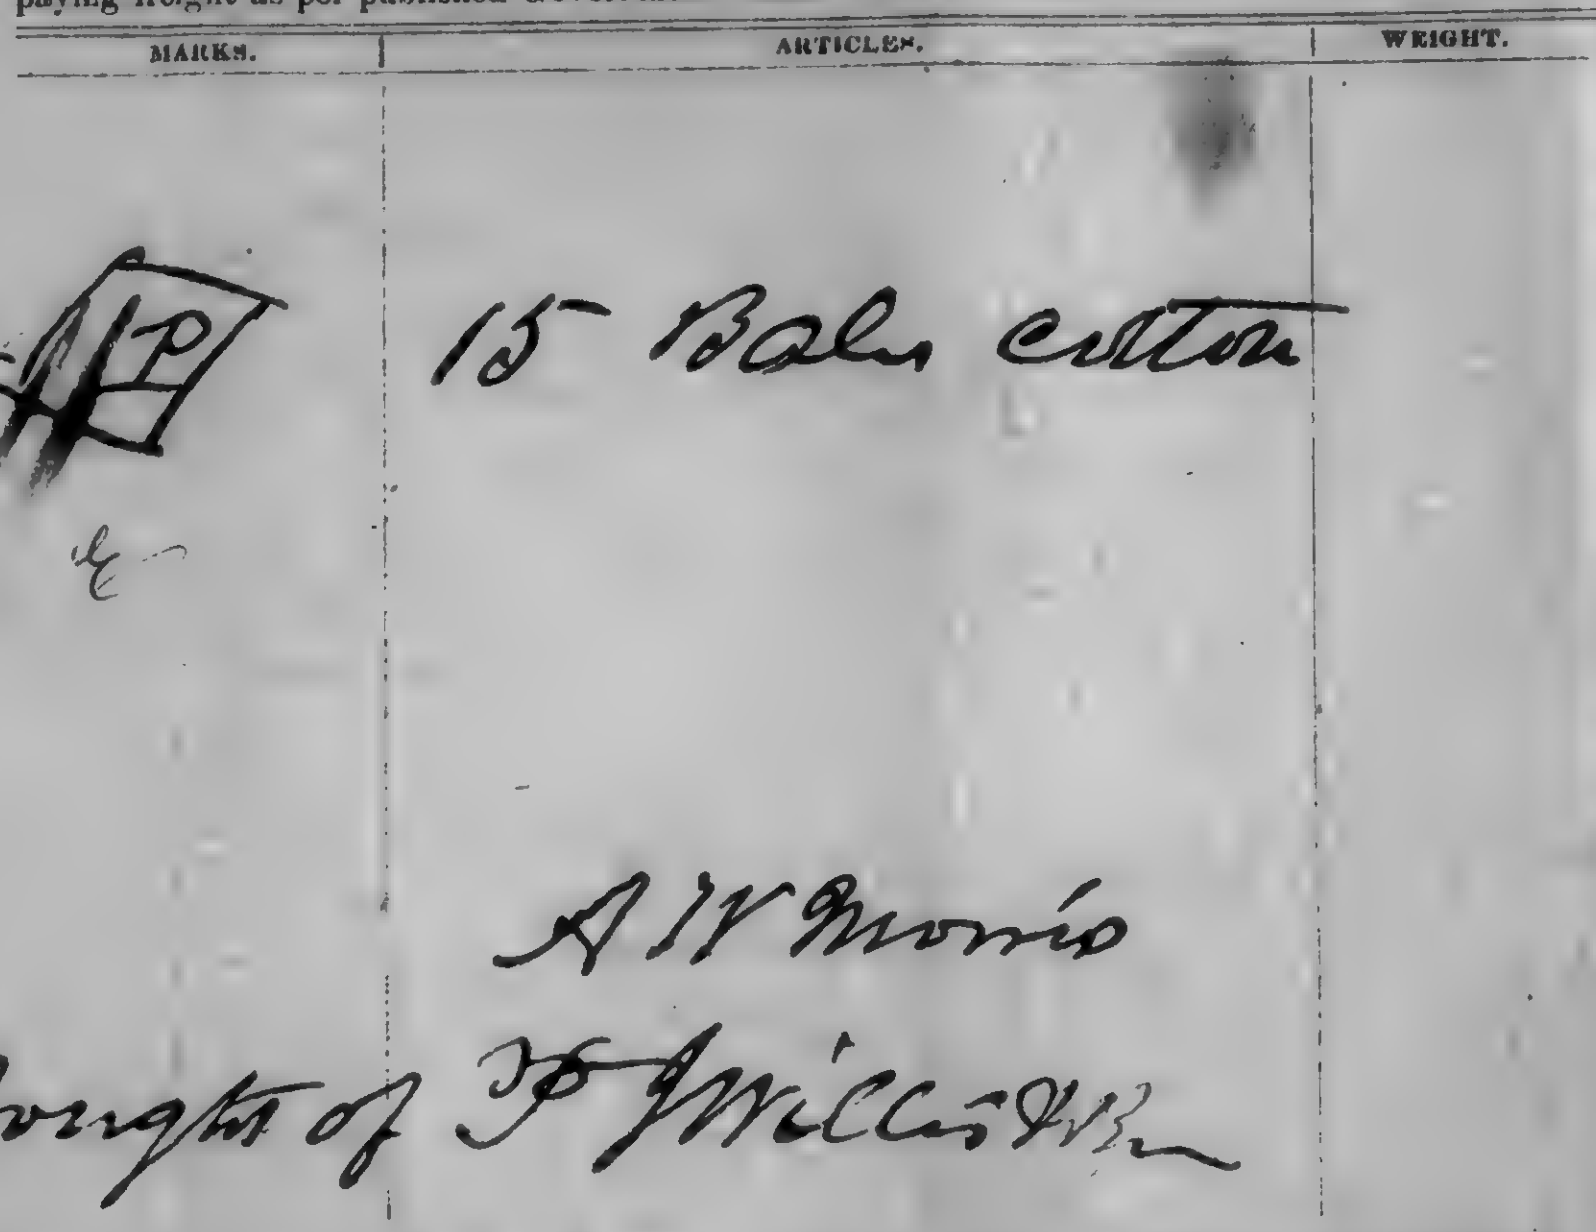 paying freight as per published
MARKS. ARTICLES. WEIGHT.
P 15 Bales cotton
A W Morris
bought of F J Willis & Bro